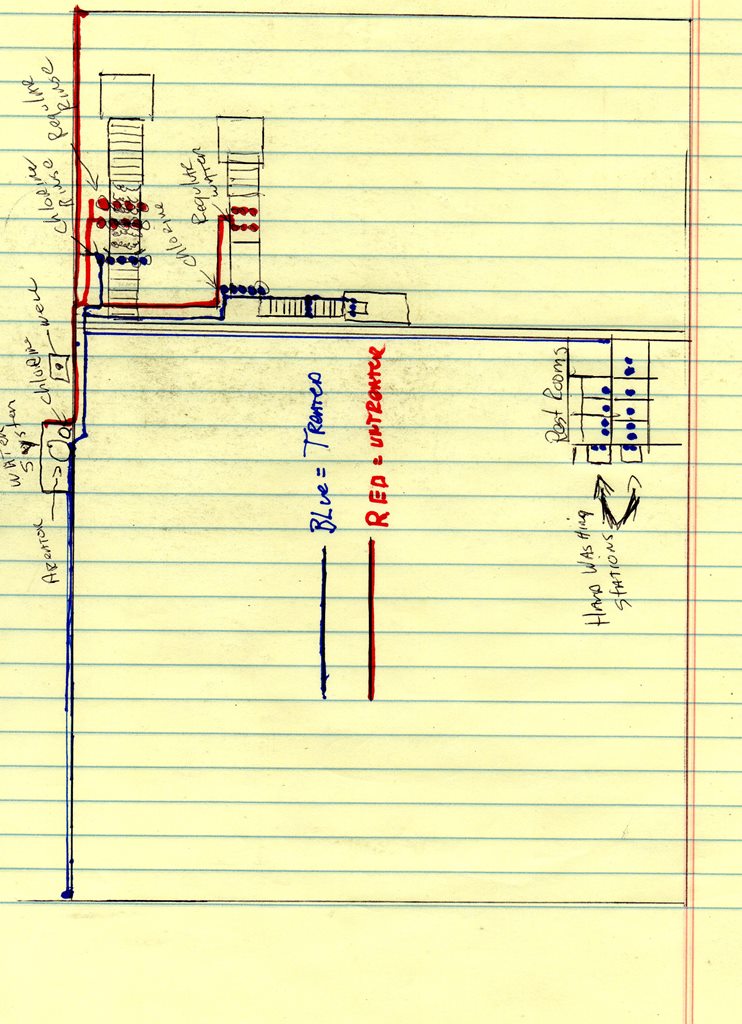 WATER
System
Chlorine
well
Aerator
Chlorine
Rinse
Rinse
Chlorine
water
BLue = TREATED
RED = UNTREATED
Rest Rooms
HAND WASHING
STATIONS